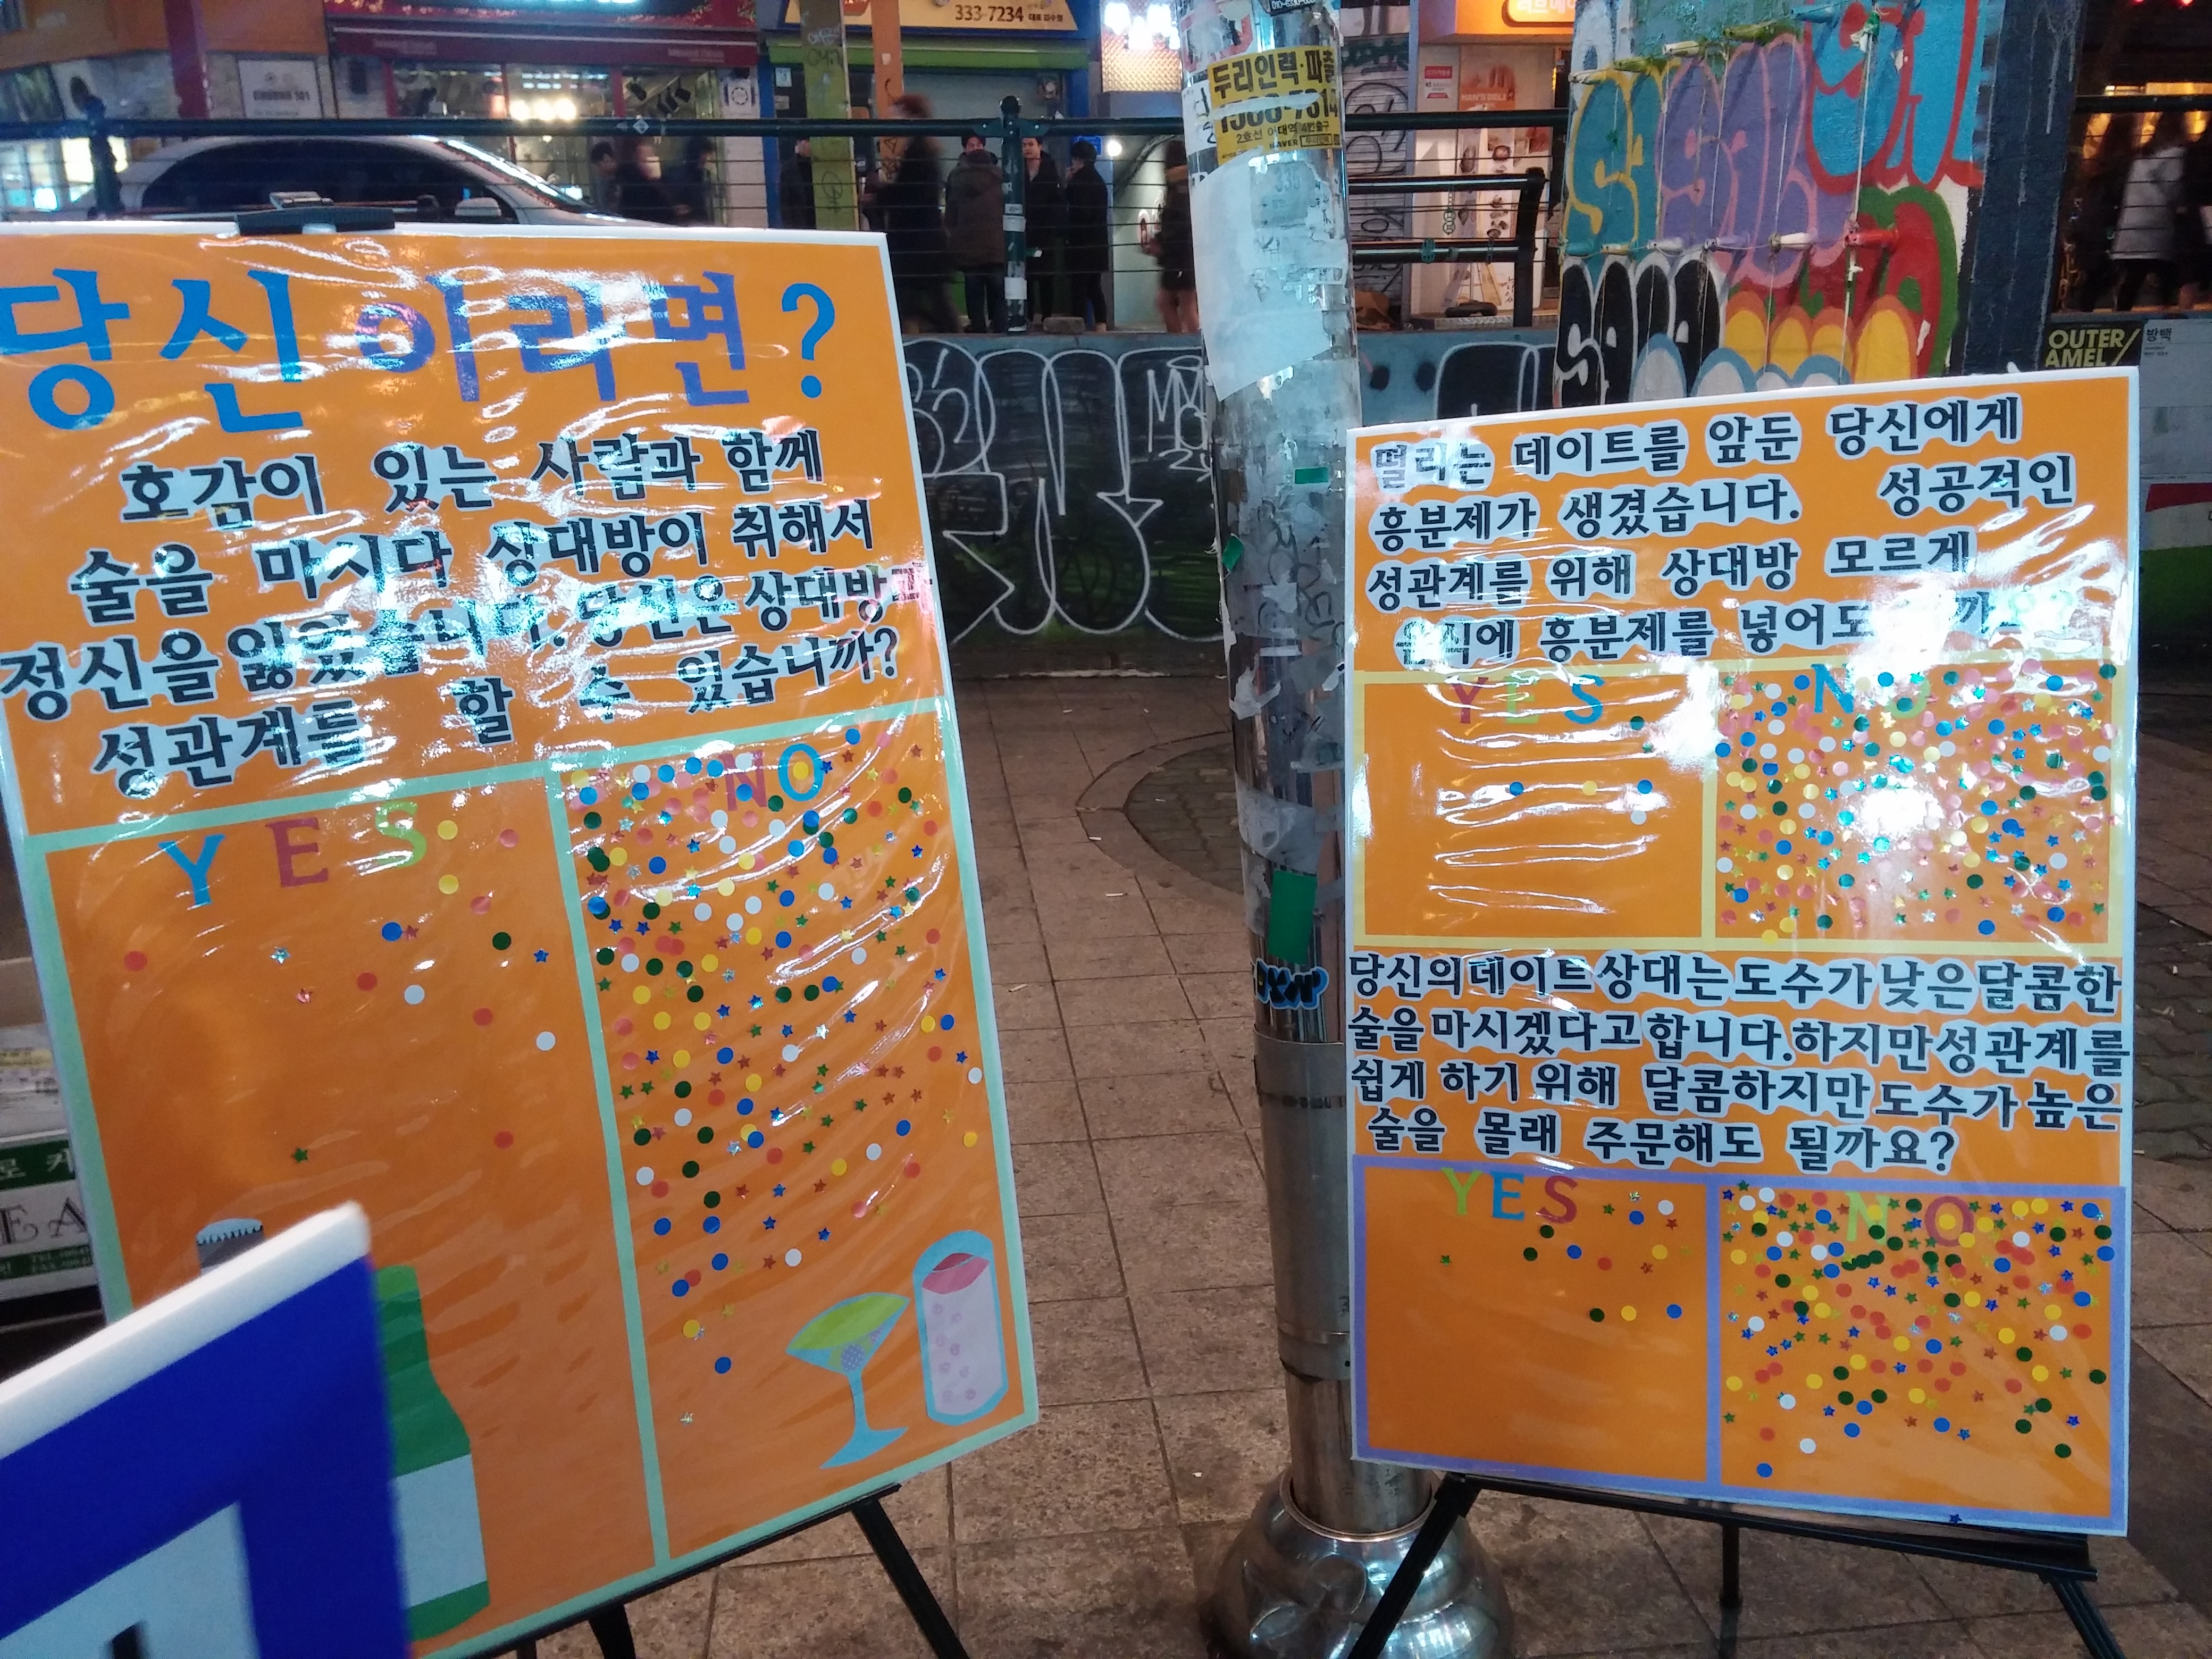 333-7234
두리인력·파출
1588-7814
2호선 이대역 4번출구
NAVER
HAN'S DELI
OUTER
AMEL
방백
당신이라면?
호감이 있는 사람과 함께
술을 마시다 상대방이 취해서
정신을 잃었습니다. 당신은 상대방
성관계를 할 수 있습니까?
YES
NO
떨리는 데이트를 앞둔 당신에게
흥분제가 생겼습니다. 성공적인
성관계를 위해 상대방 모르게
음식에 흥분제를 넣어도
YES
NO
당신의 데이트 상대는 도수가 낮은 달콤한
술을 마시겠다고 합니다. 하지만 성관계를
쉽게 하기 위해 달콤하지만 도수가 높은
술을 몰래 주문해도 될까요?
YES
NO